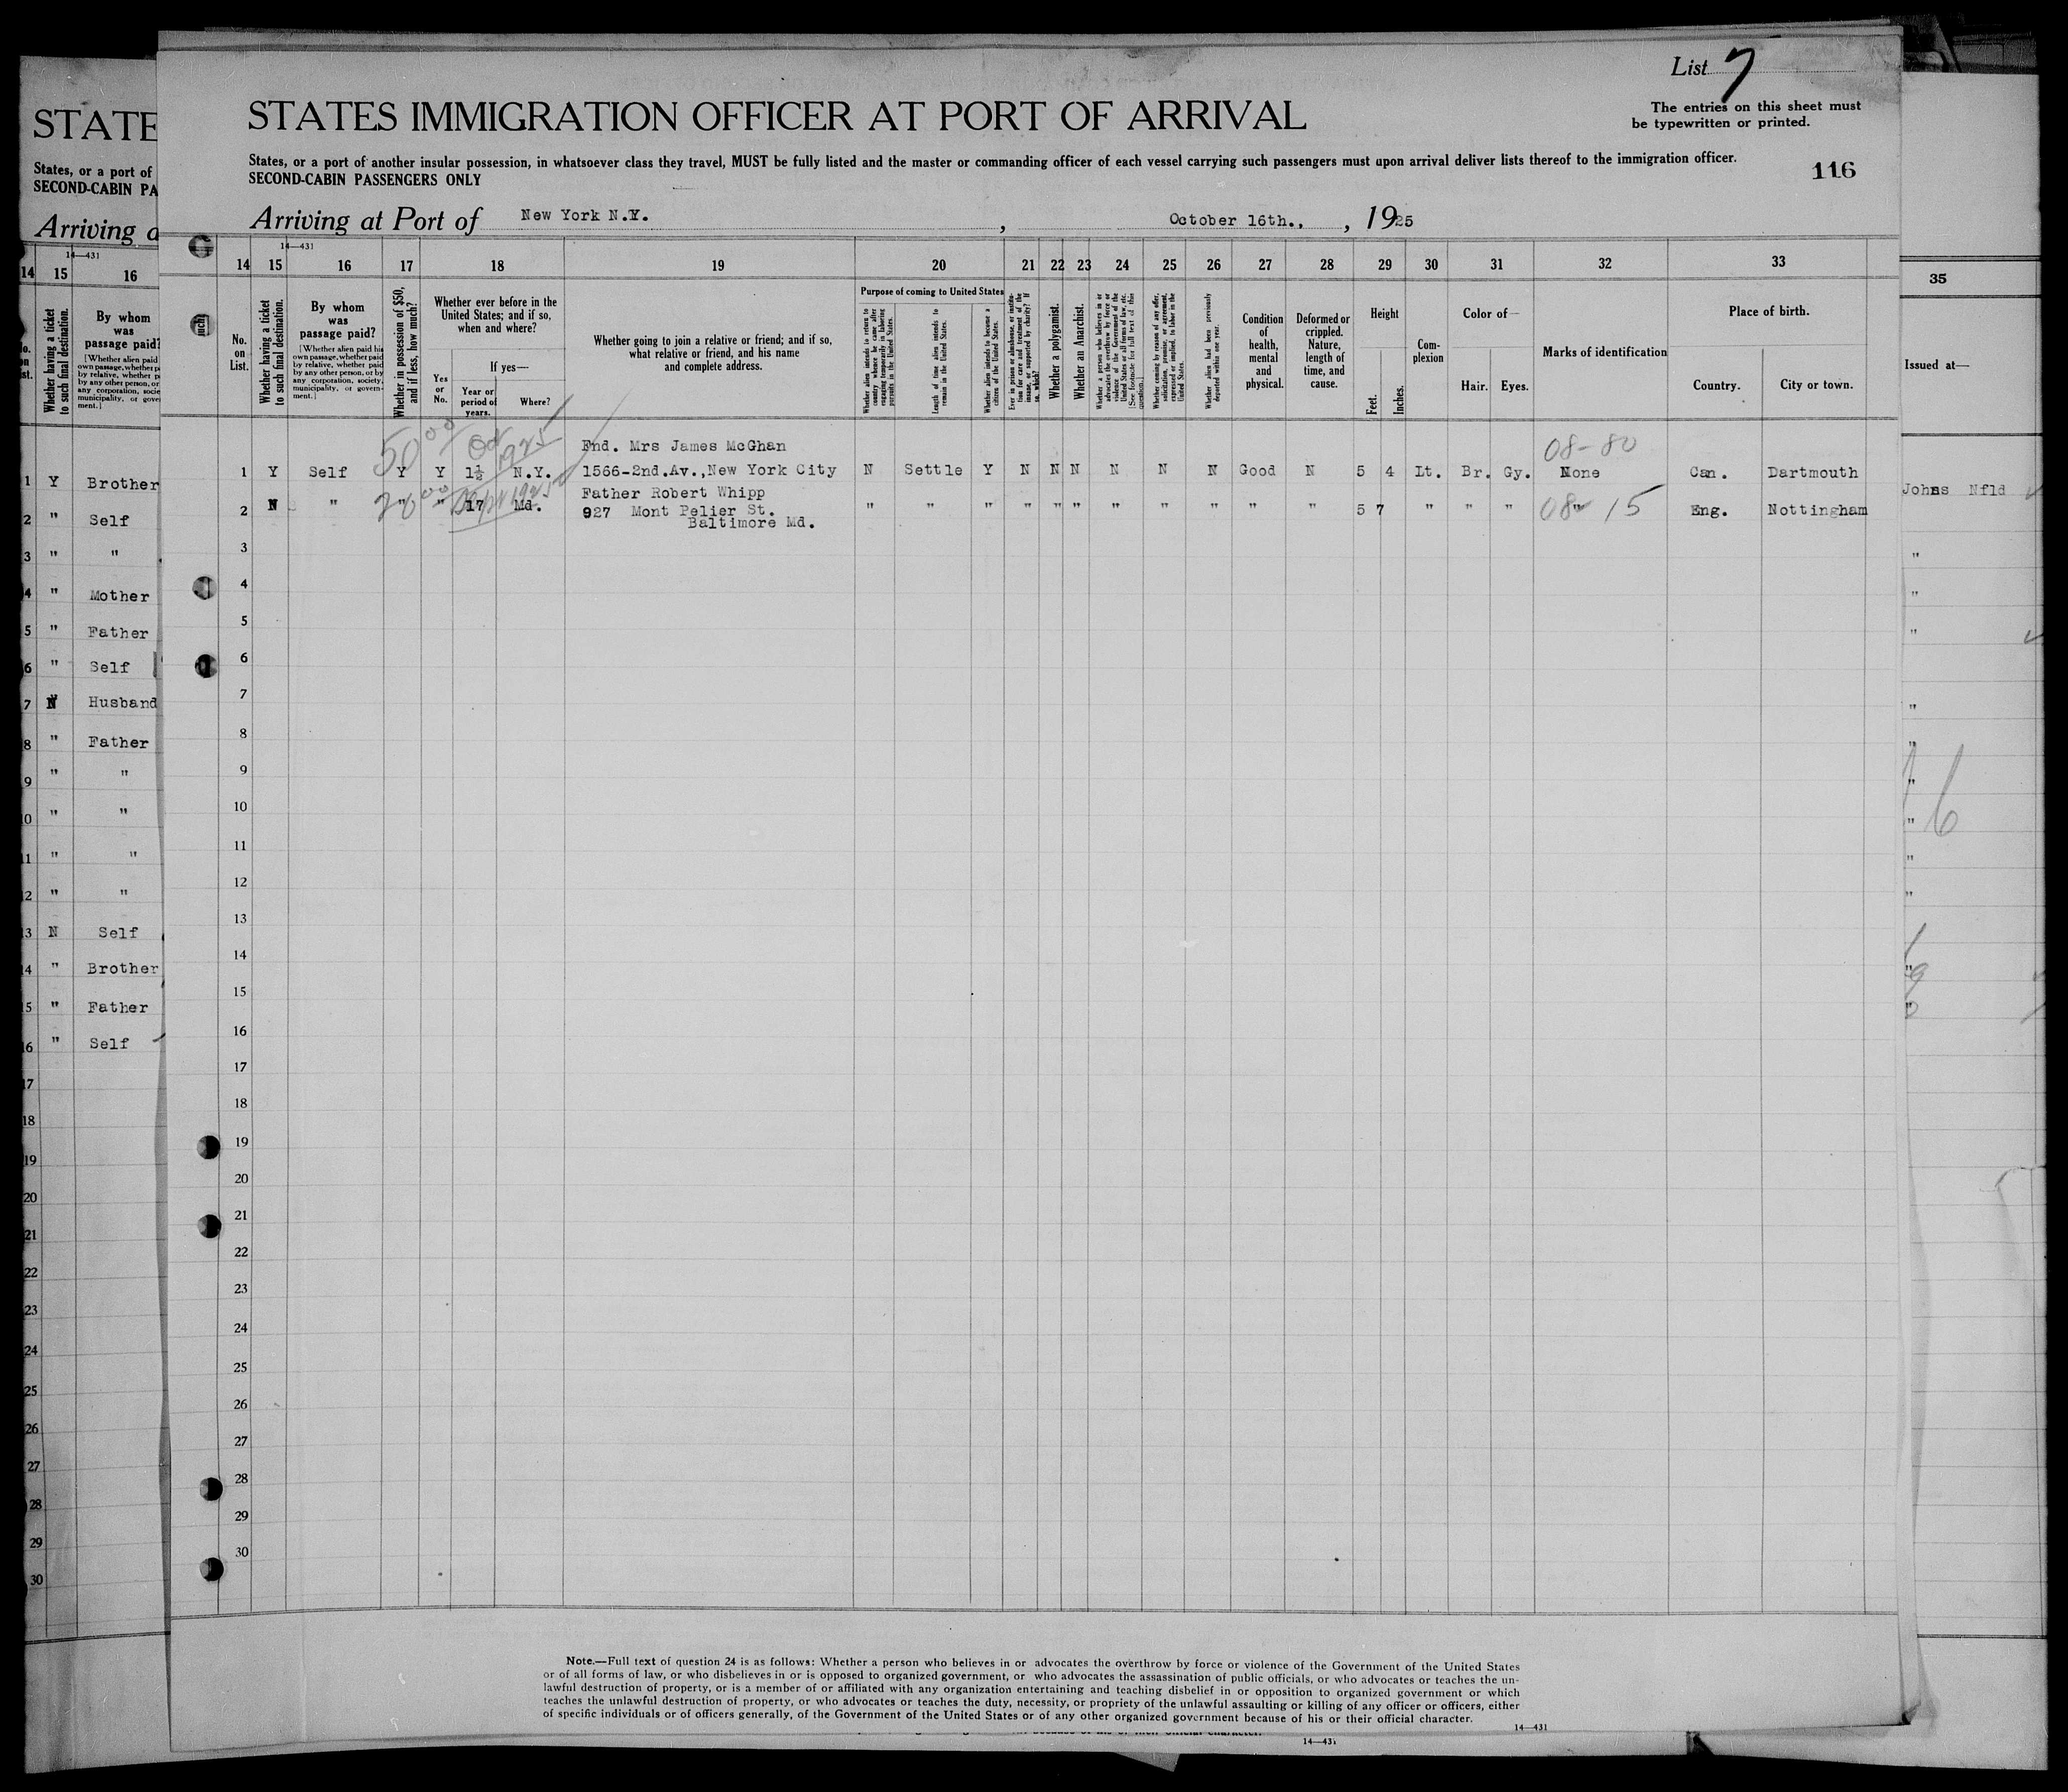 List 7
STATES IMMIGRATION OFFICER AT PORT OF ARRIVAL
The entries on this sheet must
be typewritten or printed.
States, or a port of another insular possession, in whatsoever class they travel, MUST be fully listed and the master or commanding officer of each vessel carrying such passengers must upon arrival deliver lists thereof to the immigration officer.
SECOND-CABIN PASSENGERS ONLY
116
Arriving at Port of New York N.Y. , October 16th., , 1925
14—431
14 15 16 17 18 19 20 21 22 23 24 25 26 27 28 29 30 31 32 33
No. on List.
Whether having a ticket to such final destination.
By whom was passage paid?
[Whether alien paid his own passage, whether paid by relative, whether paid by any other person, or by any corporation, society, municipality, or government.]
Whether in possession of $50, and if less, how much?
Whether ever before in the United States; and if so, when and where?
Yes or No.
If yes—
Year or period of years.
Where?
Whether going to join a relative or friend; and if so, what relative or friend, and his name and complete address.
Purpose of coming to United States
Whether alien intends to return to country whence he came after engaging temporarily in laboring pursuits in the United States.
Length of time alien intends to remain in the United States.
Whether alien intends to become a citizen of the United States.
Ever in prison or almshouse, or institution for care and treatment of the insane, or supported by charity? If so, which?
Whether a polygamist.
Whether an Anarchist.
Whether a person who believes in or advocates the overthrow by force or violence of the Government of the United States or all forms of law, etc. [See footnote for full text of this question.]
Whether coming by reason of any offer, solicitation, promise, or agreement, expressed or implied, to labor in the United States.
Whether alien had been previously deported within one year.
Condition of health, mental and physical.
Deformed or crippled. Nature, length of time, and cause.
Height
Feet. Inches.
Complexion
Color of—
Hair. Eyes.
Marks of identification
Place of birth.
Country. City or town.
50 00 Oct 1925 08-80
Fnd. Mrs James McGhan
1 Y Self Y Y 1½ N.Y. 1566-2nd.Av.,New York City N Settle Y N N N N N N Good N 5 4 Lt. Br. Gy. None Can. Dartmouth
Father Robert Whipp
2 N " " " 17 Md. 927 Mont Pelier St. " " " " " " " " " " " 5 7 " " " " 08-15 Eng. Nottingham
Baltimore Md.
3
4
5
6
7
8
9
10
11
12
13
14
15
16
17
18
19
20
21
22
23
24
25
26
27
28
29
30
Note.—Full text of question 24 is as follows: Whether a person who believes in or advocates the overthrow by force or violence of the Government of the United States
or of all forms of law, or who disbelieves in or is opposed to organized government, or who advocates the assassination of public officials, or who advocates or teaches the un-
lawful destruction of property, or is a member of or affiliated with any organization entertaining and teaching disbelief in or opposition to organized government or which
teaches the unlawful destruction of property, or who advocates or teaches the duty, necessity, or propriety of the unlawful assaulting or killing of any officer or officers, either
of specific individuals or of officers generally, of the Government of the United States or of any other organized government because of his or their official character.
14—431
14—431
STATE
States, or a port of
SECOND-CABIN PA
Arriving a
14—431
14 15 16
Whether having a ticket to such final destination.
By whom was passage paid?
1 Y Brother
2 " Self
3 " "
4 " Mother
5 " Father
6 " Self
7 N Husband
8 " Father
9 " "
10 " "
11 " "
12 " "
13 N Self
14 " Brother
15 " Father
16 " Self
17
18
19
20
21
22
23
24
25
26
27
28
29
30
35
Issued at—
Johns Nfld
"
"
"
"
"
"
"
"
"
"
"